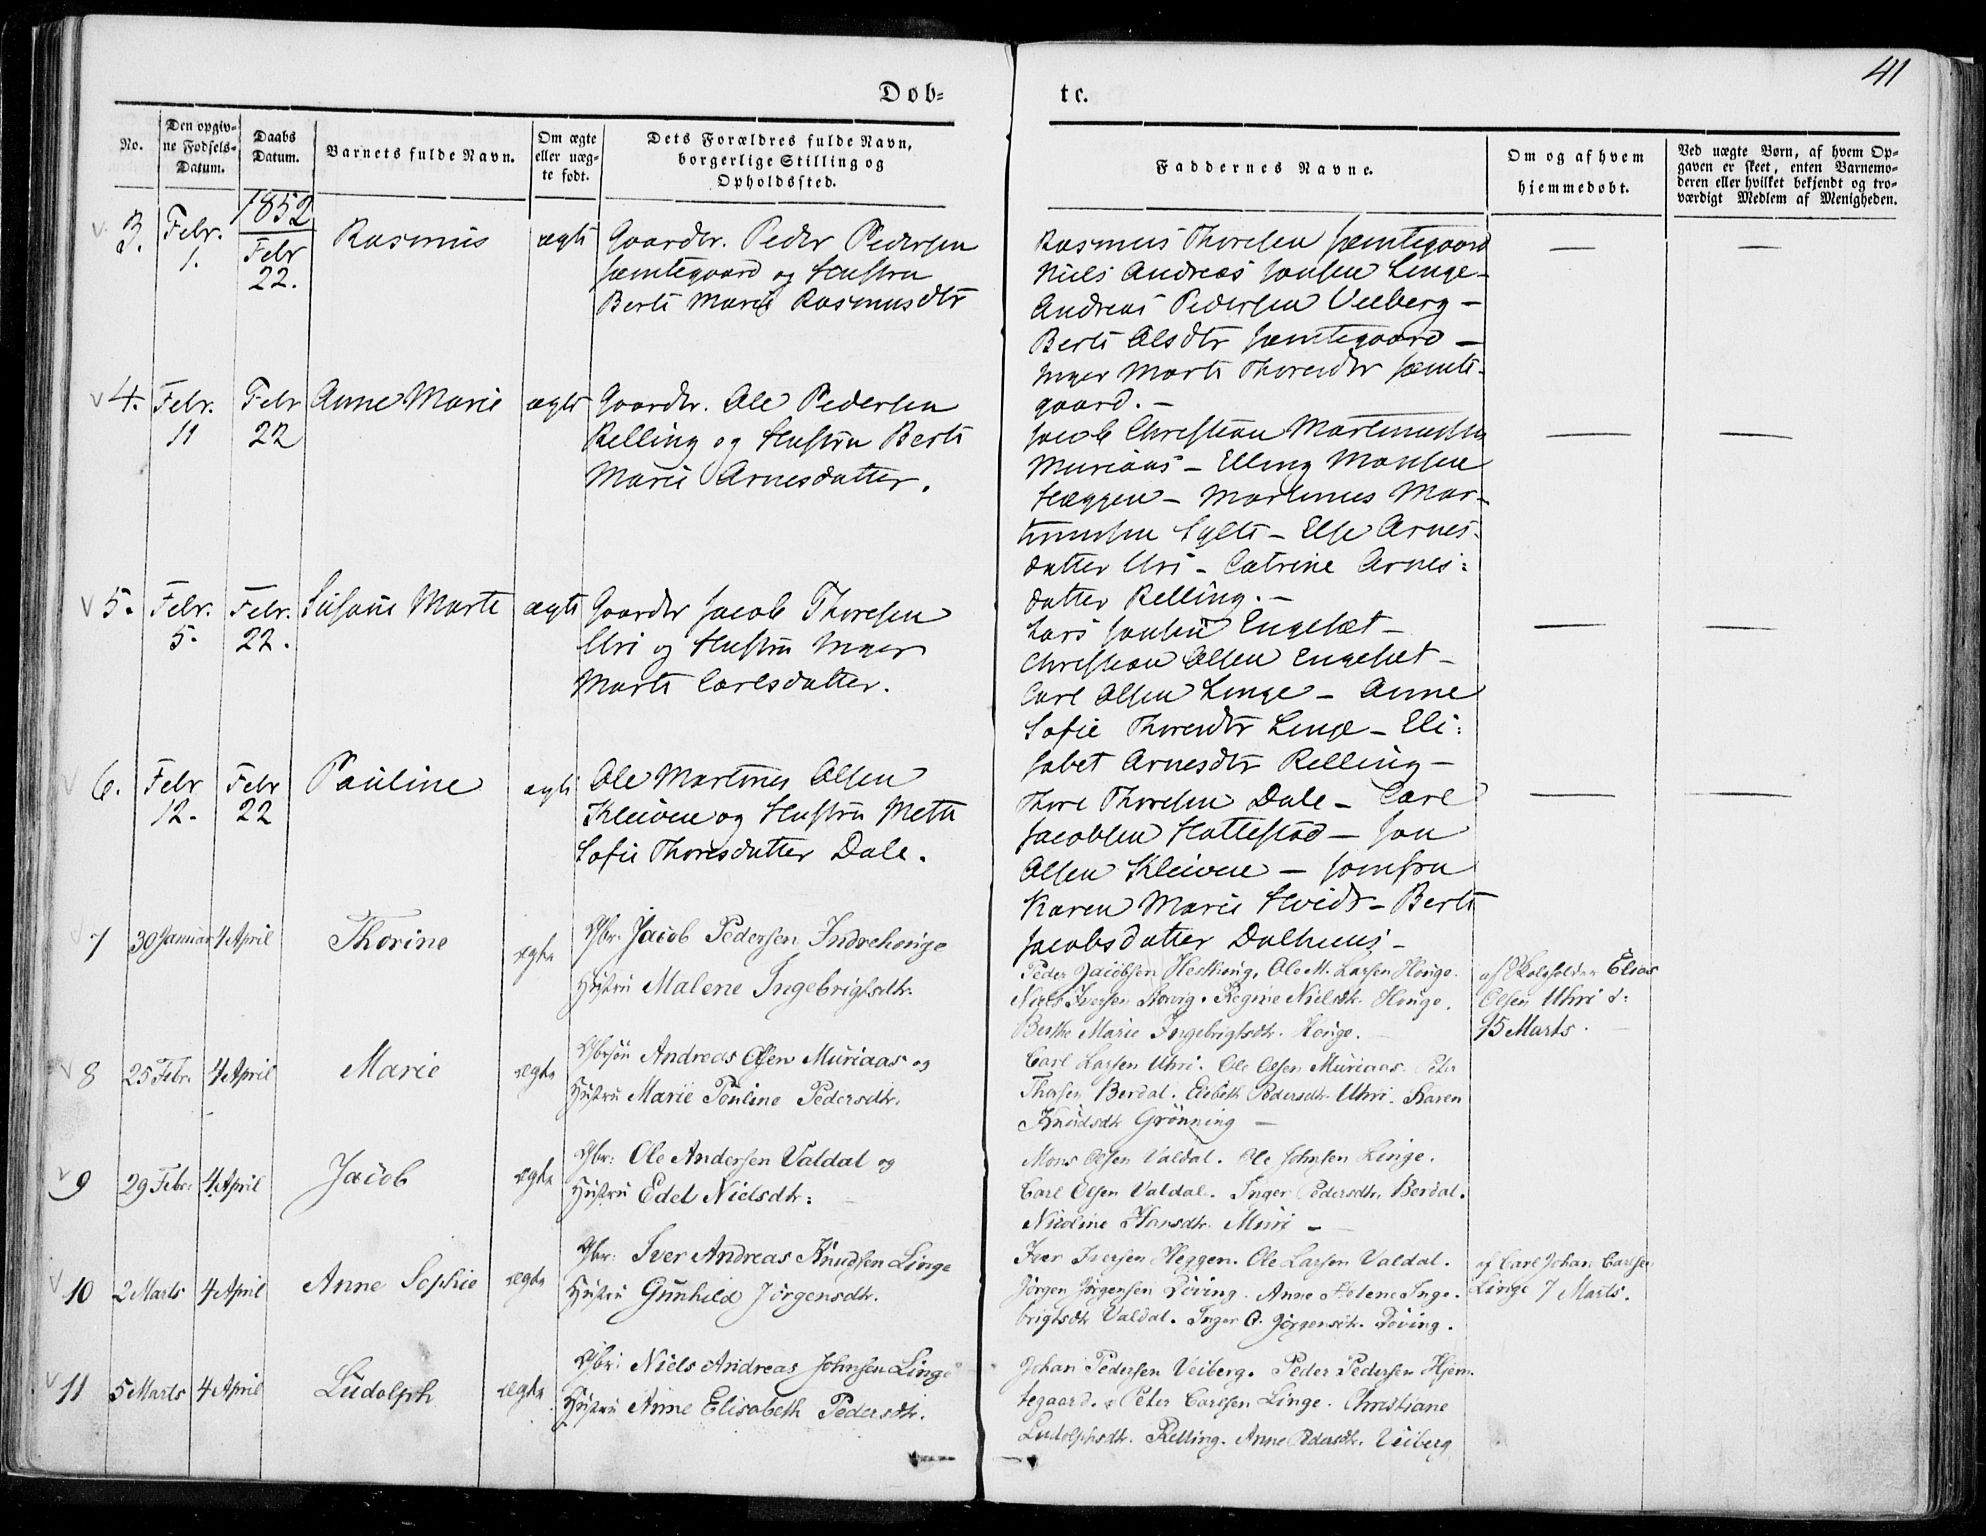 41
Døb=
te.
No.
Den opgiv=
ne Fødsels=
Datum.
Daabs
Datum.
Barnets fulde Navn.
Om ægte
eller uæg=
te født.
Dets Forældres fulde Navn,
borgerlige Stilling og
Opholdssted.
Faddernes Navne.
Om og af hvem
hjemmedøbt.
Ved uægte Børn, af hvem Op=
gaven er skeet, enten Barnemo=
deren eller hvilket bekjendt og tro=
værdigt Medlem af Menigheden.
1852
3. Febr. 1. Febr 22. Rasmus ægte Gaardbr. Peder Pedersen
Jemtegaard og Hustru
Berte Marie Rasmusdtr
Rasmus Thoresen Jemtegaard
Niels Andreas Jonsen Linge -
Andreas Pedersen Veiberg -
Berte Olsdtr Jemtegaard -
Inger Marte Thoresdtr Jemte-
gaard. -
4. Febr. 11 Febr 22 Anne Marie ægte Gaardbr. Ole Pedersen
Relling og Hustru Berte
Marie Arnesdatter.
Jacob Christian Martinussen
Muriaas - Elling Monsen
Hæggen - Martinus Mar-
tinussen Sylte - Else Arnes-
datter Uri - Catrine Arnes=
datter Relling. -
5. Febr. 5. Febr. 22. Susane Marte ægte Gaardbr Jacob Thoresen
Uri og Hustru Inger
Marte Carlsdatter.
Lars Jonsen Engeset -
Christian Olsen Engeset -
Carl Olsen Linge - Anne
Sofie Thoresdtr Linge - Eli=
sabet Arnesdtr Relling -
6. Febr 12. Febr 22 Pauline ægte Ole Martinus Olsen
Kleiven og Hustru Mette
Sofie Thoresdatter Dale.
Thore Thoresen Dale - Carl
Jacobsen Hattestad - Jon
Olsen Kleiven - Jomfru
Karen Marie Hvidt - Berte
Jacobsdatter Dalhuus -
7 30 Januar 4 April Thorine ægte Gbr. Jacob Pedersen Indrehonge
Hustru Malene Ingebrigtsdtr.
Peder Jacobsen Hesthong, Ole M. Larsen Honge.
Niels Iversen Storvig. Regine Nielsdtr. Honge.
Berthe Marie Ingebrigtsdtr. Honge. -
af Skoleholder Elias
Olsen Uhri d:
15 Marts.
8 25 Febr. 4 April Marie ægte Gbrsøn Andreas Olsen Muriaas og
Hustru Marie Pouline Pedersdtr.
Carl Larsen Uhri. Ole Olsen Muriaas. Peter
Thorsen Berdal. Elisbeth Pedersdtr. Uhri. Karen
Knudsdtr Grønning -
9 29 Febr. 4 April Jacob ægte Gbr: Ole Andersen Valdal og
Hustru Edel Nielsdtr:
Mons Olsen Valdal. Ole Johnsen Linge.
Carl Olsen Valdal. Inger Pedersdtr. Berdal.
Nicoline Hansdtr. Muri -
10 2 Marts 4 April Anne Sophie ægte Gbr: Iver Andreas Knudsen Linge
Hustru Gunhild Jørgensdtr.
Iver Iversen Heggen. Ole Larsen Valdal.
Jørgen Jørgensen Døving. Anne Helene Inge-
brigtsdtr Valdal. Inger O. Jørgensdtr. Døving.
af Carl Johan Carlsen
Linge 7 Marts.
11 5 Marts 4 April Ludolph ægte Gbr: Niels Andreas Johnsen Linge
Hustru Anne Elisabeth Pedersdtr.
Johan Pedersen Veiberg. Peder Pedersen Hjem-
tegaard. Peter Carlsen Linge. Christiane
Ludolphsdtr. Relling. Anne Pedersdtr. Veiberg